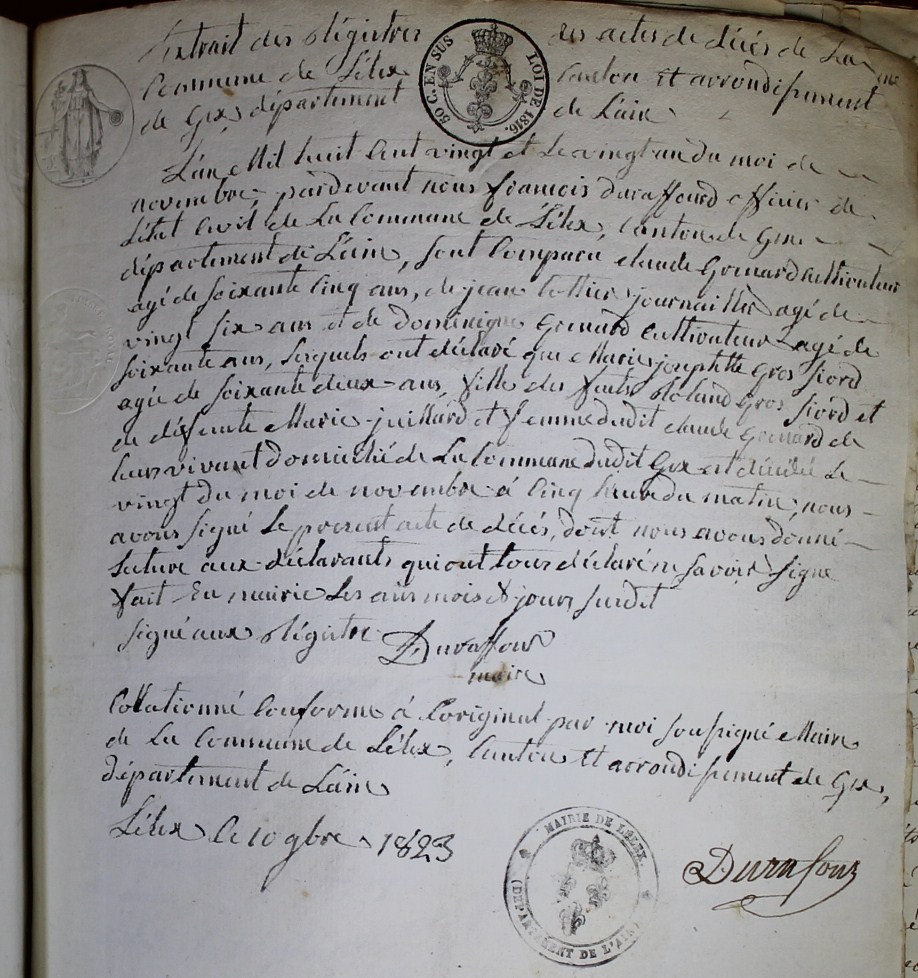 Extrait des Régistres des actes de décés de La
Commune de Lélex Canton Et arrondissement
de Gex département de L'ain
50 C. EN SUS LOI DE 1816.
L'an Mil huit Cent vingt et Le vingt un du moi de
novembre, pardevant nous françois Duraffourd officier de
L'état Civil de La Commune de Lélex, Canton de Gex
département de L'ain, sont Comparu claude Grosnard cultivateur
agé de soixante Cinq ans, de jean journaillier agé de
vingt six ans et de dominique Grosnard cultivateur agé de
soixante ans, Lesquels ont déclaré que Marie josephtte Gros fiord
agée de soixante deux ans, fille des faits Roland Gros fiord et
de défunte Marie juillard et femme dudit claude Grosnard de
Leurs vivant domicilié de La Commune dudit Gex est décédée Le
vingt du moi de novembre á Cinq heure du matin, nous
avons signé Le present acte de décés, dont nous avons donné
Lecture aux déclarants qui ont tous déclaré ne savoir signe
fait En mairie Les ans mois & jours susdit
signé aux Régistre Duraffour
maire
Collationné Conforme á L'original par moi soussigné Maire
de La Commune de Lélex, Canton Et arrondissement de Gex,
département de L'ain
Lélex Le 10 9bre 1823
MAIRIE DE LÉLEX
(DÉPARTEMENT DE L'AIN)
Durafour